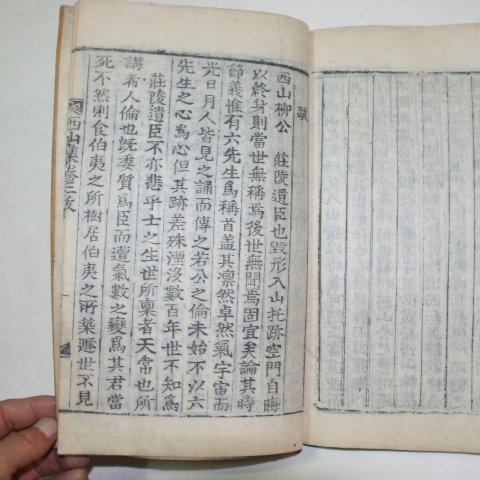 跋
西山柳公 莊陵遺臣也毁形入山托跡空門自晦
以終身則當世無稱焉後世無聞焉固宜矣論其時
節義惟有六先生爲稱首盖其凛然卓然氣宇宙而
光日月人皆見之誦而傳之若公之倫未始不以六
先生之心爲心但其跡差殊湮沒數百年世不知爲
莊陵遺臣不亦悲乎士之生世所禀者天常也所
講者人倫也旣委質爲臣而遭氣數之變爲其君當
死不然則食伯夷之所樹居伯夷之所築遯世不見
西山集卷三跋